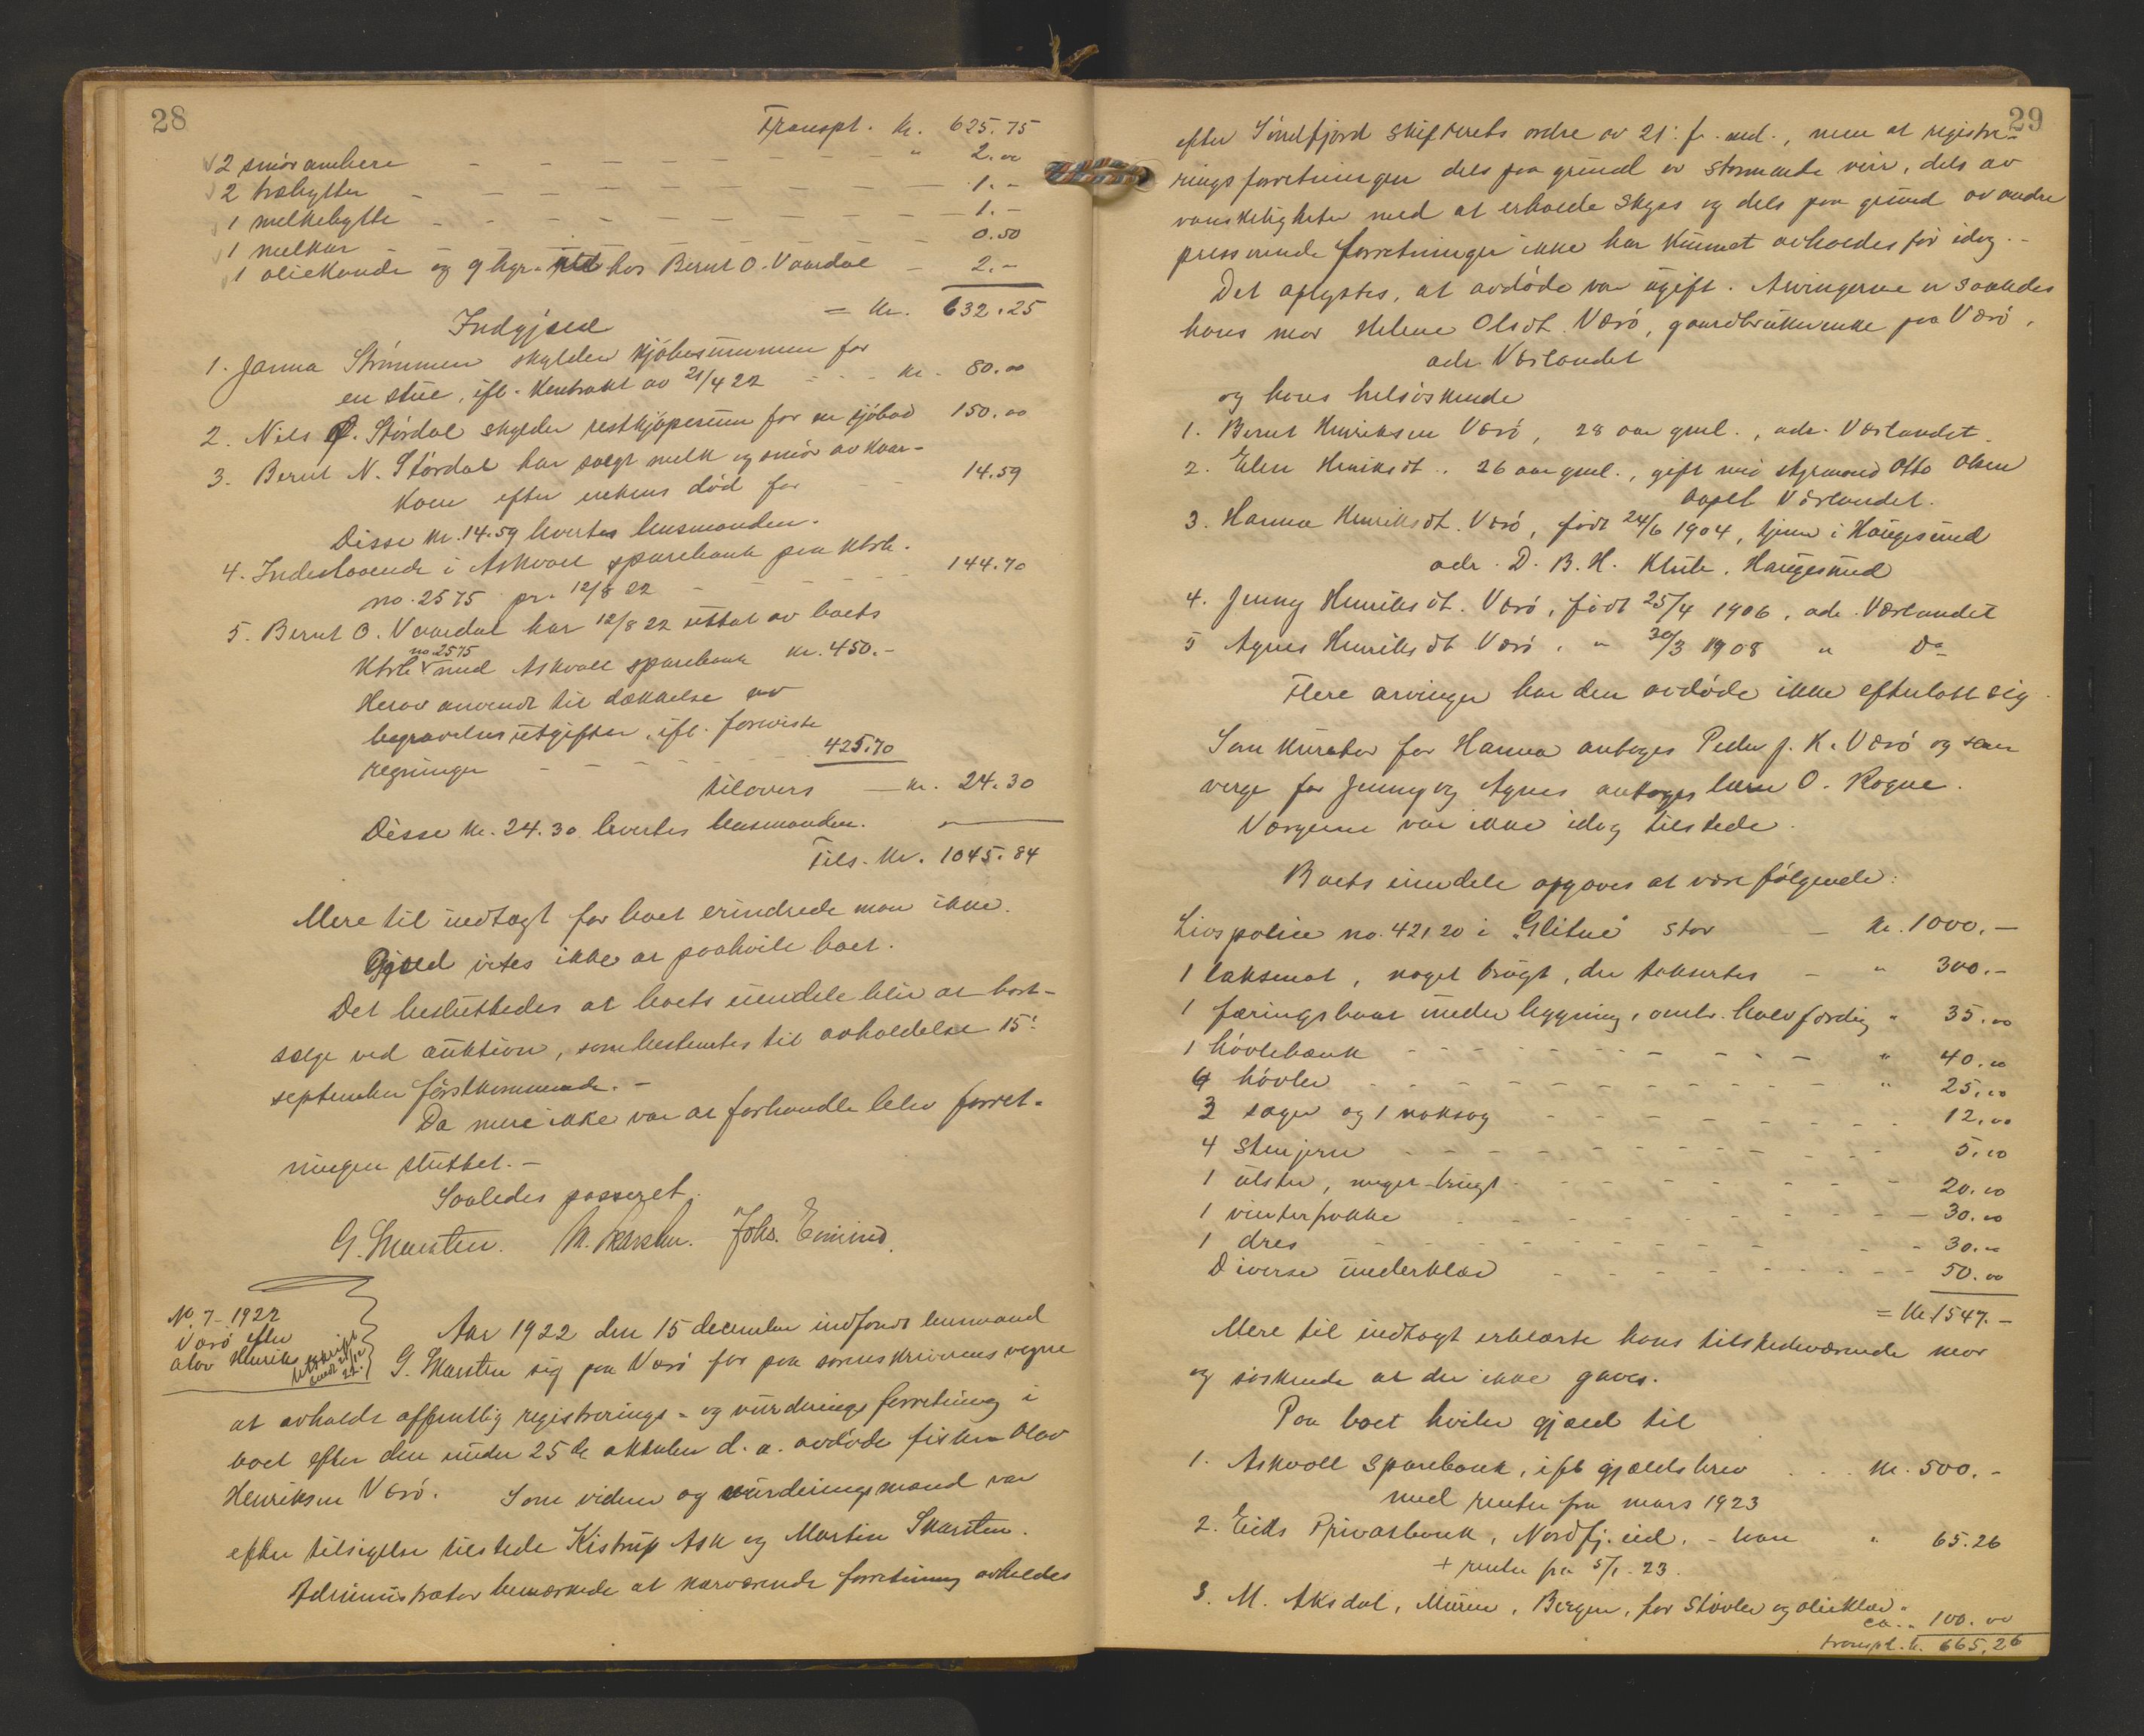 28
Transpt. kr. 625.75
2 smörambere - - - " 2.00
2 træbytter - - - 1.-
1 melkebytte - - - 1.-
1 melkar - - - 0.50
1 oliekande og 9 hgr. hos Bernt O. Vaardal - 2.-
= kr. 632.25
Indgjæld
1. Janna Strömmen skylder kjöbesummen for
en stue, ifl. kontrakt av 21/4 22 - - - kr. 80.00
2. Nils O. Stördal skylder restkjöpesum for en sjöbod 150.00
3. Bernt N. Stördal har solgt melk og smör av
koen efter enkens död for - - 14.59
Disse kr. 14.59 levertes lensmanden.
4. Indestaaende i Askvoll sparebank paa ktrb.
no. 2575 pr. 12/8 22 - - - - - 144.70
5. Bernt O. Vaardal har 12/8 22 uttat av boets
ktrb no 2575 med Askvoll sparebank kr. 450.-
Herav anvendt til dækkelse av
begravelsesutgifter, ifl. foreviste
regninger - - - - - 425.70
tilovers - kr. 24.30
Disse kr. 24.30 levertes lensmanden.
Tils. kr. 1045.84
Mere til indtægt for boet erindrede man ikke.
Gjæld vites ikke at paahvile boet.
Det besluttedes at boets eiendele blir at bort-
sælge ved auktion, som bestemtes til avholdelse 15:
september förstkommende. -
Da mere ikke var at forhandle blev forret-
ningen sluttet. -
Saaledes passeret.
G. Skarsten. M. Skarsten. Johs. Eimind.
No. 7 - 1922
Værö efter
Olav Henriks
Utskrift
sendt 21/12
22.
Aar 1922 den 15 december indfandt lensmand
G. Skarsten sig paa Værö for paa sorenskriverens vegne
at avholde offentlig registrerings- og vurderingsforretning i
boet efter den under 25de oktober d. a. avdöde fisker Olav
Henriksen Værö. Som vidner og vurderingsmænd var
efter tilsigelse tilstede Kistrup Ask og Martin Skarsten.
Administrator bemærkede at nærværende forretning avholdes
29
efter Söndfjord skifterets ordre av 21: f. md., men at registre-
ringsforretningen dels paa grund av stormende veir, dels av
vanskeligheter med at erholde skyss og dels paa grund av andre
presserende forretninger ikke har kunnet avholdes för idag. -
Det oplystes, at avdöde var ugift. Arvingerne er saaledes
hans mor Helene Olsdt. Værö, gaardbrukerenke paa Værö,
adr. Værlandet
og hans helsöskende
1. Bernt Henriksen Værö, 28 aar gml., adr. Værlandet.
2. Elen Henriksdt., 26 aar gml., gift med styrmand Otto Olsen
Værlandet.
3. Hanna Henriksdt. Værö, född 24/6 1904, tjener i Haugesund
adr. D. B. H. Haugesund
4. Jenny Henriksdt. Værö, född 25/4 1906, adr. Værlandet
5 Agnes Henriksdt Værö, " 30/3 1908 " Do
Flere arvinger har den avdöde ikke efterlatt sig.
Som kurator for Hanna antoges Peder J. K. Værö og som
verge for Jenny og Agnes antoges O. Rogne.
Værgerne var ikke idag tilstede.
Boets eiendele opgaves at være fölgende:
Livspolice no. 42120 i "Glitne" stor - kr. 1000.-
1 laksenot, noget brugt, der taksertes - " 300.-
1 færingsbaat under bygning, omtr. halvfærdig " 35.00
1 hövlebænk - - - " 40.00
6 hövler - - - " 25.00
3 sager og 1 noksag - - - 12.00
4 stemjern - - - 5.00
1 ulster, meget brugt - - - 20.00
1 vinterfrakke - - - 30.00
1 dres - - - 30.00
Diverse underklær - - - 50.00
= Kr. 1547.-
Mere til indtægt erklærte hans tilstedeværende mor
og söskende at der ikke gaves.
Paa boet hviler gjæld til
1. Askvoll Sparebank, ifl. gjældsbrev . . . kr. 500.-
med renter fra mars 1923
2. Eids Privatbank, Nordfj.eid. - laan " 65.26
+ renter fra 5/1 - 23.
3. M. Aksdal, Muren, Bergen, for stövler og olieklær.
ca. " 100.00
transpt. kr. 665.26